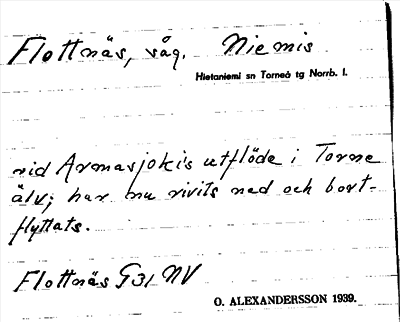 Flottnäs, såg. Niemis
Hietaniemi sn Torneå tg Norrb. l.
vid Armasjoki's utflöde i Torne
älv; har nu rivits ned och bort-
flyttats.
Flottnäs G31 NV
O. ALEXANDERSSON 1939.